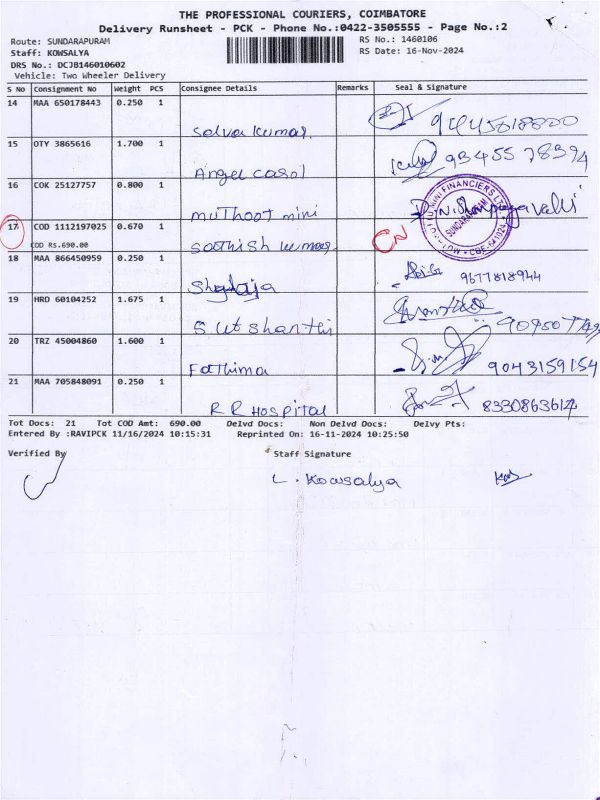 THE PROFESSIONAL COURIERS, COIMBATORE
Delivery Runsheet - PCK - Phone No.:0422-3505555 - Page No.:2
Route: SUNDARAPURAM RS No.: 1460106
Staff: KOWSALYA RS Date: 16-Nov-2024
DRS No.: DCJB146010602
Vehicle: Two Wheeler Delivery
S No Consignment No Weight PCS Consignee Details Remarks Seal & Signature
14 MAA 650178443 0.250 1
Selva kumar
15 OTY 3865616 1.700 1
Angel casol 9345578394
16 COK 25127757 0.800 1
muthoot mini
MUTHOOTTU MINI FINANCIERS LTD
SUNDARAPURAM
17 COD 1112197025 0.670 1
COD Rs.690.00 Saathish kumar CN
18 MAA 866450959 0.250 1
9677818944
19 HRD 60104252 1.675 1
20 TRZ 45004860 1.600 1
Fathima 9043159154
21 MAA 705848091 0.250 1
R R Hospital 8330863614
Tot Docs: 21 Tot COD Amt: 690.00 Delvd Docs: Non Delvd Docs: Delvy Pts:
Entered By :RAVIPCK 11/16/2024 10:15:31 Reprinted On: 16-11-2024 10:25:50
Verified By Staff Signature
L. Kowsalya